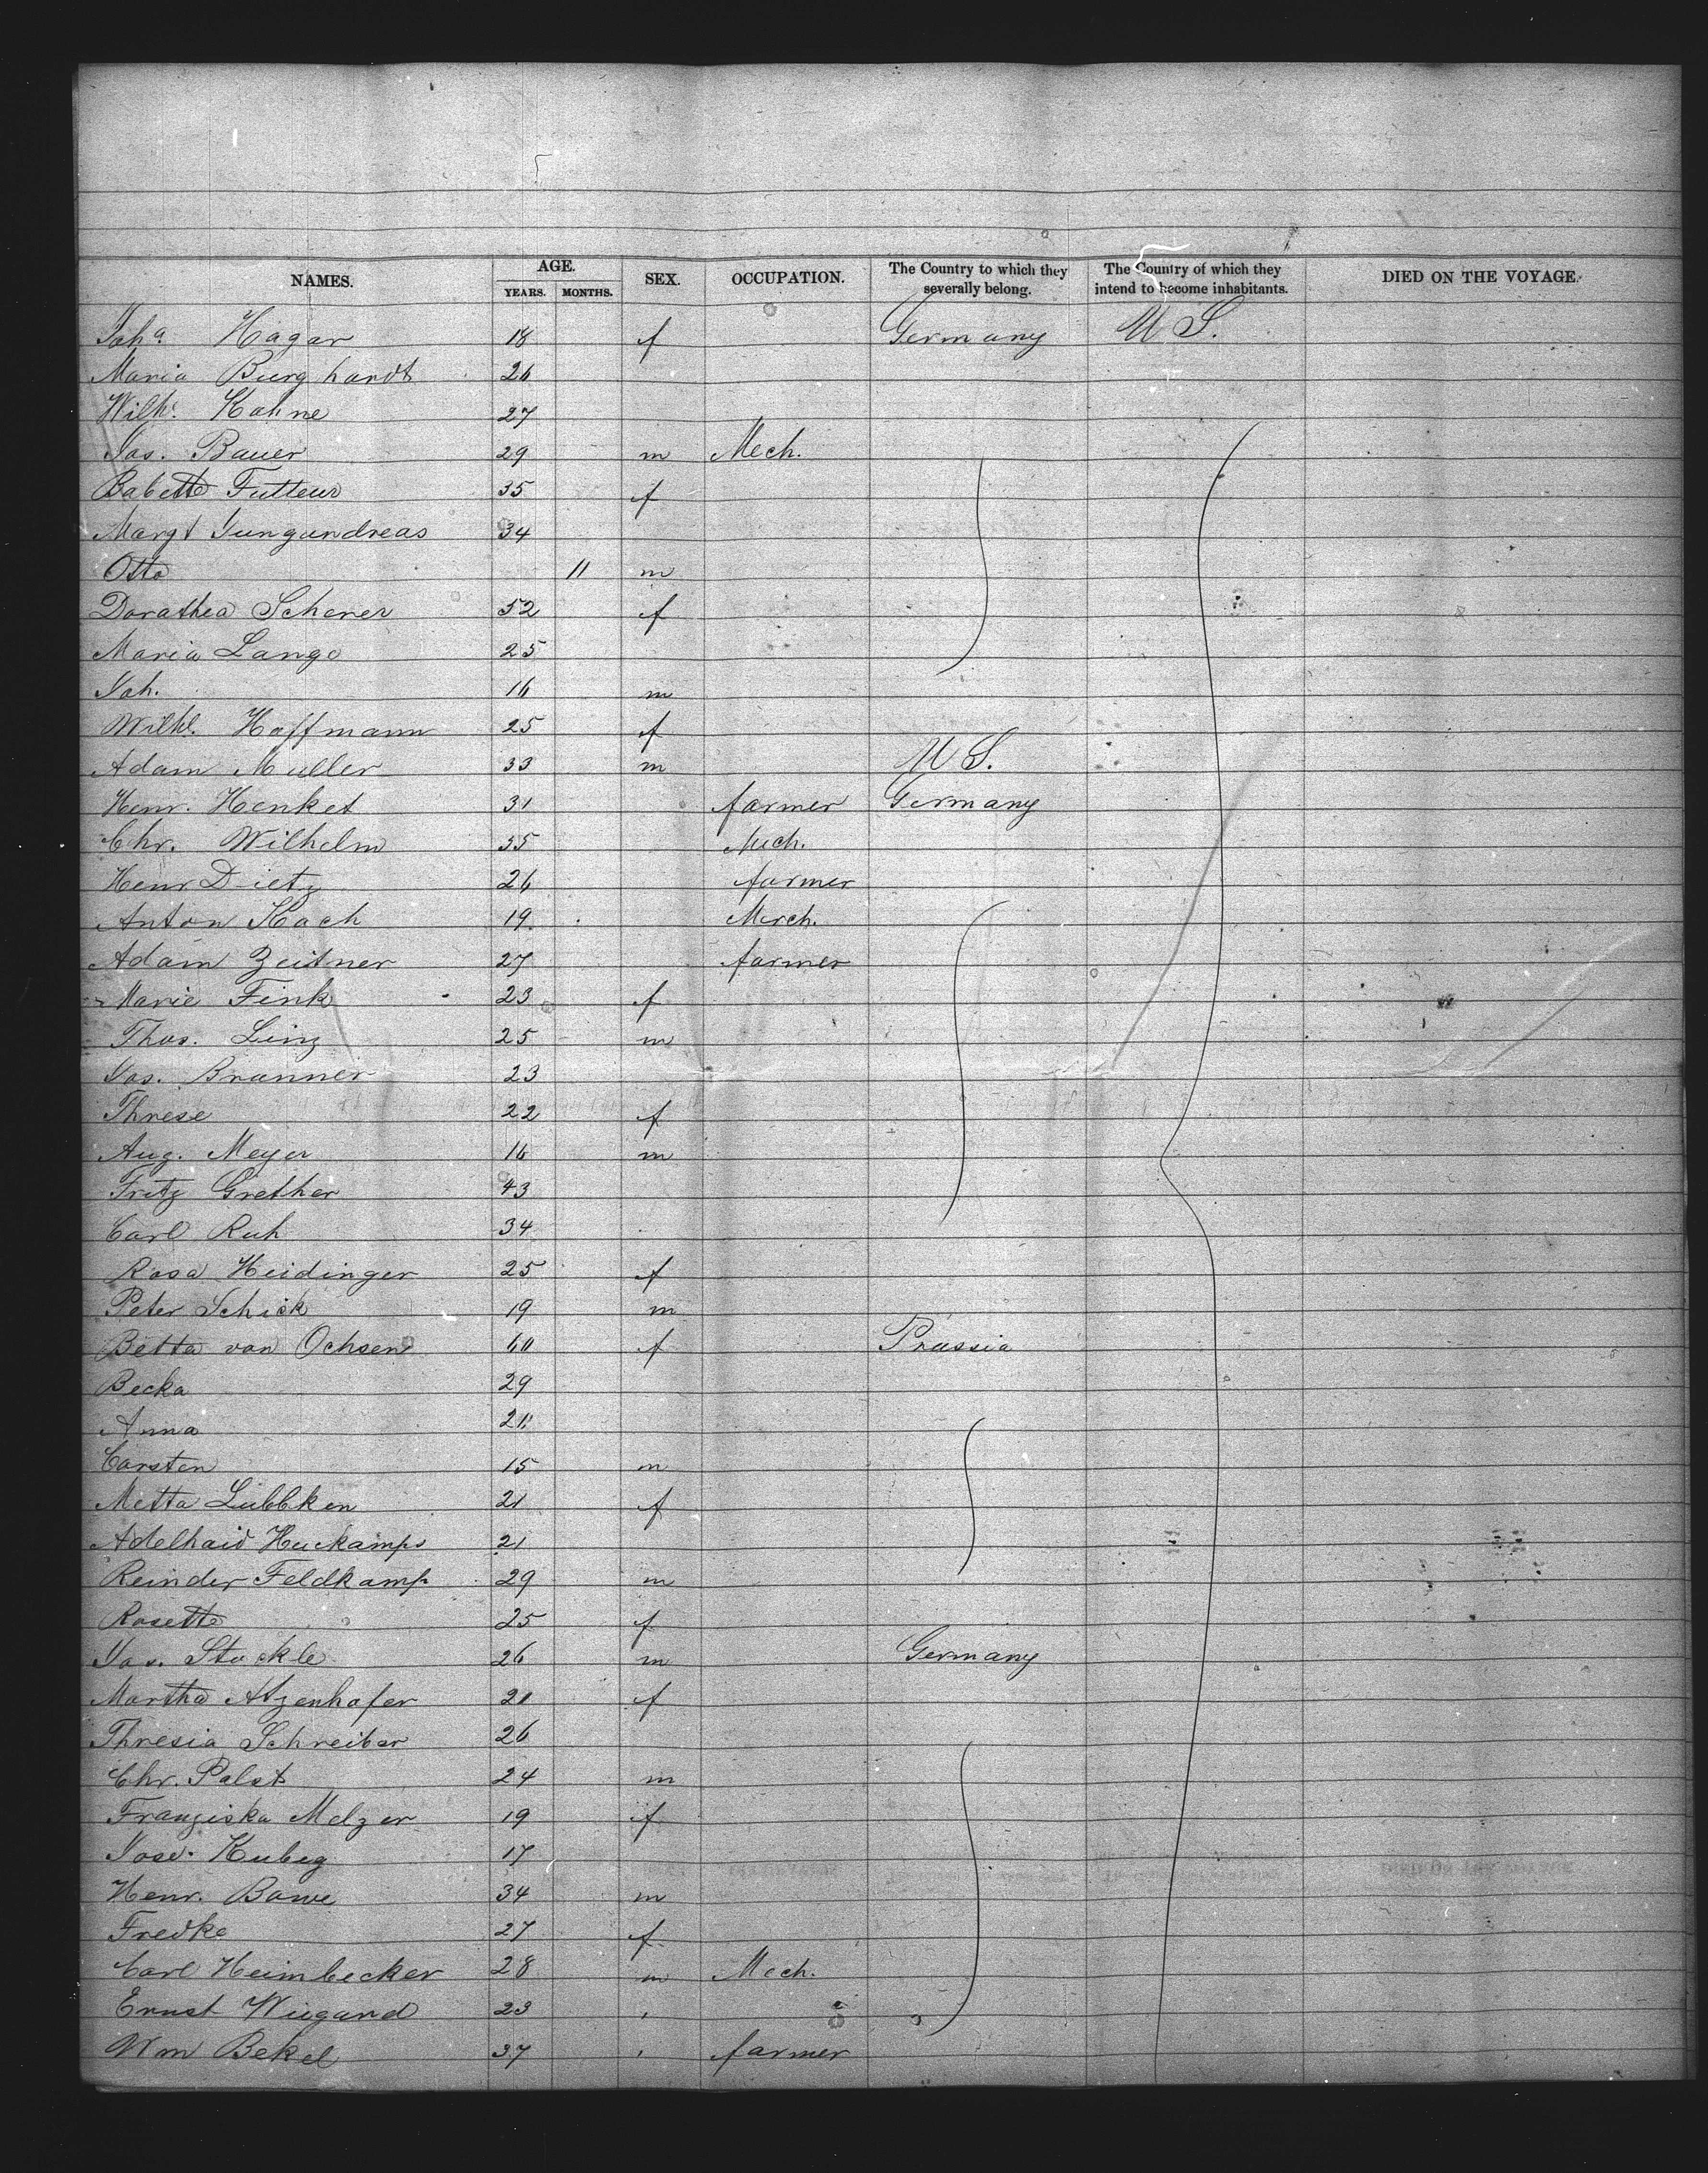 NAMES. AGE. YEARS. MONTHS. SEX. OCCUPATION. The Country to which they severally belong. The Country of which they intend to become inhabitants. DIED ON THE VOYAGE.
Joha Hagar 18 f Germany U S.
Maria Burghardt 26
Wilh. Kohne 27
Jos. Bauer 29 m Mech.
Babette Futteur 35 f
Margt Gungandreas 34
Otto 11 m
Dorathea Scherer 52 f
Maria Lange 25
Joh. 16 m
Wilhl. Hoffmann 25 f
Adam Muller 33 m U S.
Henr. Henket 31 farmer Germany
Chr. Wilhelm 35 Mech.
Henr Dietz 26 farmer
Anton Koch 19 Merch.
Adam Zeitner 27 farmer
Marie Fink 23 f
Thos. Linz 25 m
Jos. Brunner 23
Threse 22 f
Aug. Meyer 16 m
Fritz Grether 43
Carl Ruh 34
Rosa Heidinger 25 f
Peter Schick 19 m
Betta von Ochsen 60 f Prussia
Becka 29
Anna 21
Carsten 15 m
Metta Lubbken 21 f
Adelhaid Huckamps 21
Reinder Feldkamp 29 m
Rosette 25 f
Jos. Stockle 26 m Germany
Martha Atzenhofer 21 f
Thresia Schreiber 26
Chr. Palst 24 m
Franziska Melzer 19 f
Jose. Kubeg 17
Henr. Bowe 34 m
Fredke 27 f
Carl Heimbecker 28 m Mech.
Ernst Wiegand 23
Wm Bekel 37 farmer